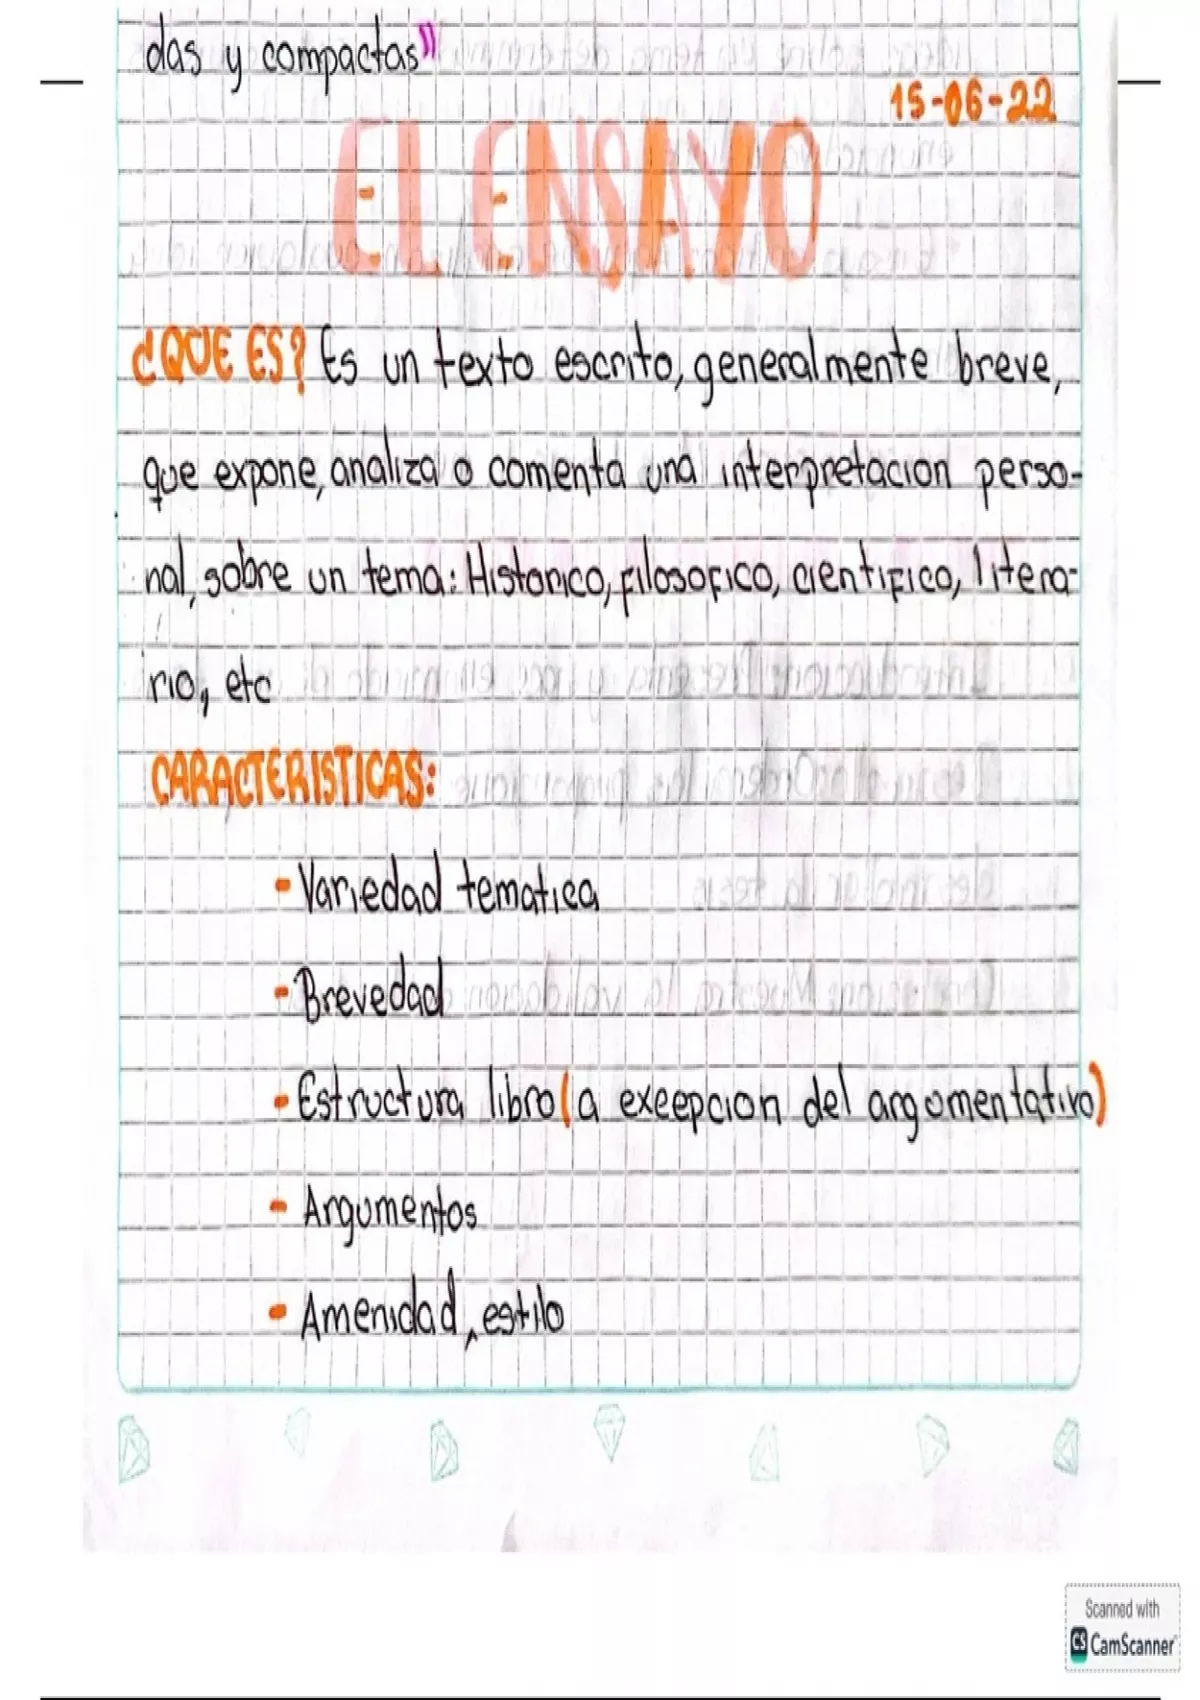 das y compactas"
15-06-22
EL ENSAYO
¿QUE ES? Es un texto escrito, generalmente breve,
que expone, analiza o comenta una interpretacion perso-
nal, sobre un tema: Historico, filosofico, cientifico, litera-
rio, etc
CARACTERISTICAS:
- Variedad tematica
- Brevedad
- Estructura libro (a exeepcion del argumentativo)
- Argumentos
- Amenidad, estilo
Scanned with
CS CamScanner